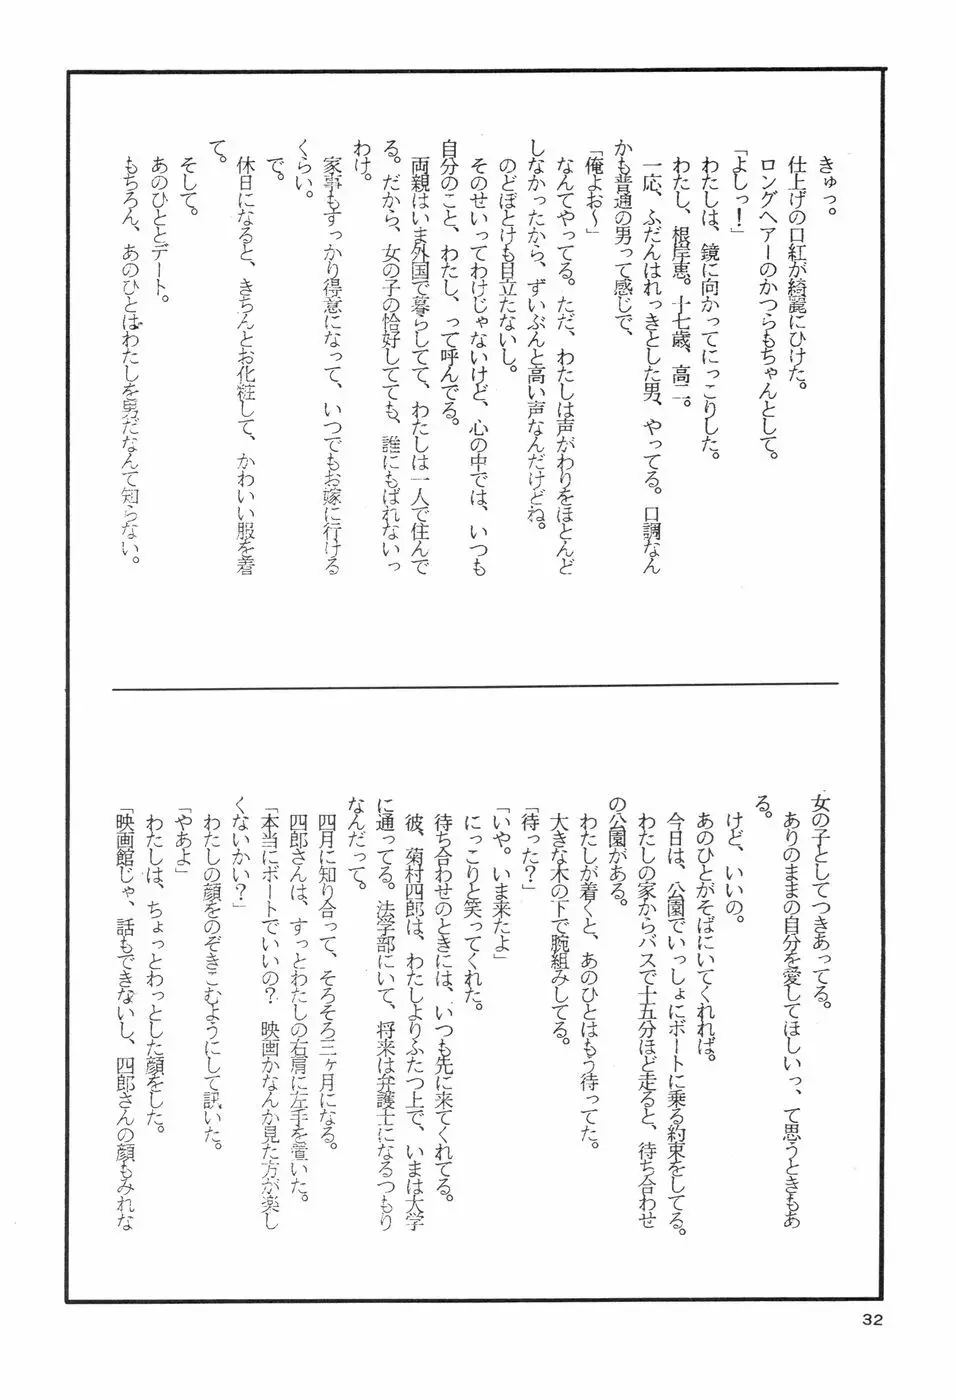 きゅっ。
仕上げの口紅が綺麗にひけた。
ロングヘアーのかつらもちゃんとして。
「よしっ！」
わたしは、鏡に向かってにっこりした。
わたし、根岸恵。十七歳、高二。
一応、ふだんはれっきとした男、やってる。口調なん
かも普通の男って感じで、
「俺よお～」
なんてやってる。ただ、わたしは声がわりをほとんど
しなかったから、ずいぶんと高い声なんだけどね。
のどぼとけも目立たないし。
そのせいってわけじゃないけど、心の中では、いつも
自分のこと、わたし、って呼んでる。
両親はいま外国で暮らしてて、わたしは一人で住んで
る。だから、女の子の恰好してても、誰にもばれないっ
わけ。
家事もすっかり得意になって、いつでもお嫁に行ける
くらい。
で。
休日になると、きちんとお化粧して、かわいい服を着
て。
そして。
あのひととデート。
もちろん、あのひとはわたしを男だなんて知らない。
女の子としてつきあってる。
ありのままの自分を愛してほしいっ、て思うときもあ
る。
けど、いいの。
あのひとがそばにいてくれれば。
今日は、公園でいっしょにボートに乗る約束をしてる。
わたしの家からバスで十五分ほど走ると、待ち合わせ
の公園がある。
わたしが着くと、あのひとはもう待ってた。
大きな木の下で腕組みしてる。
「待った？」
「いや。いま来たよ」
にっこりと笑ってくれた。
待ち合わせのときには、いつも先に来てくれてる。
彼、菊村四郎は、わたしよりふたつ上で、いまは大学
に通ってる。法学部にいて、将来は弁護士になるつもり
なんだって。
四月に知り合って、そろそろ三ヶ月になる。
四郎さんは、すっとわたしの右肩に左手を置いた。
「本当にボートでいいの？　映画かなんか見た方が楽し
くないかい？」
わたしの顔をのぞきこむようにして訊いた。
「やあよ」
わたしは、ちょっとわっとした顔をした。
「映画館じゃ、話もできないし、四郎さんの顔もみれな
32